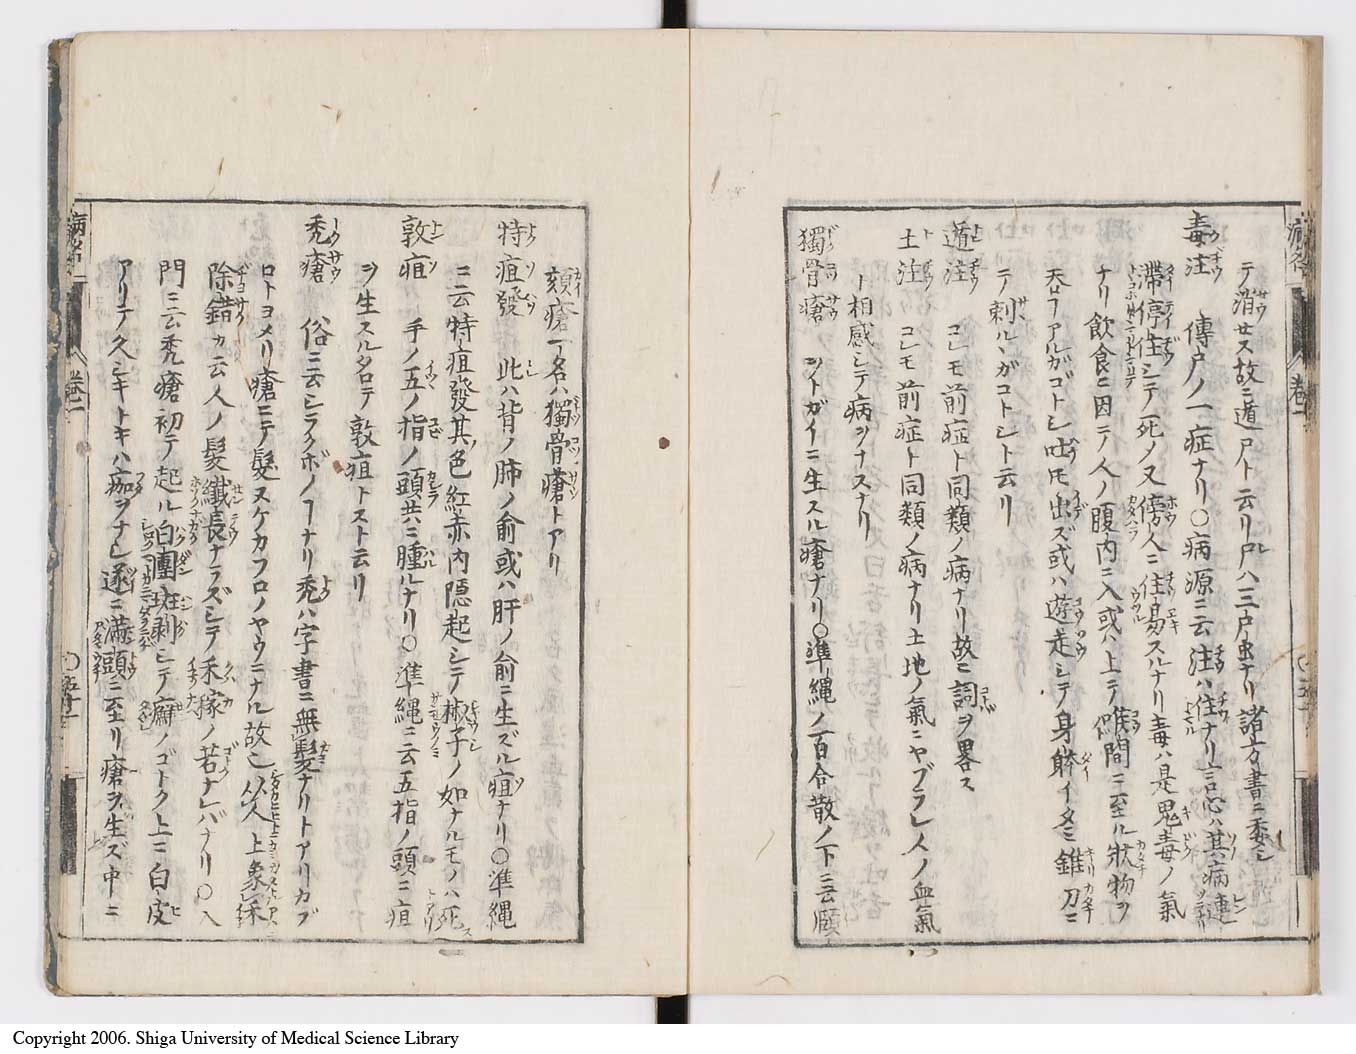 テ消セス故ニ遁尸ト云リ尸ハ三尸虫ナリ諸方書ニ委シ
毒注 傳尸ノ一症ナリ〇病源ニ云注ハ住ナリ言心ハ其病連
滞停住シテ死ノ又傍人ニ注易スルナリ毒ハ是鬼毒ノ氣
ナリ飲食ニ因テ人ノ腹内ニ入或ハ上テ喉間ニ至ル状物ヲ
吞ヿアルガゴトシ吐トモ出ズ或ハ遊走シテ身體イタミ錐刀ニ
テ刺ルヽガコトシト云リ
遁注 コレモ前症ト同類ノ病ナリ故ニ詞ヲ畧ス
土注 コレモ前症ト同類ノ病ナリ土地ノ氣ニヤブラレ人ノ血氣
ト相感シテ病ヲナスナリ
獨骨瘡 ヲトガイニ生スル瘡ナリ〇準繩ノ一百合散ノ下ニ云頤
頦瘡一名ハ獨骨瘡トアリ
特疽發 此ハ背ノ肺ノ俞或ハ肝ノ俞ニ生ズル疽ナリ〇準繩
ニ云特疽發其色紅赤内隠起シテ椒子ノ如ナルモノハ死ス
敦疽 手ノ五ノ指ノ頭共ニ腫ルナリ〇準繩ニ云五指ノ頭ニ疽
ヲ生スルタロテ敦疽トスト云リ
禿瘡 俗ニ云シラクボノヿナリ禿ハ字書ニ無髮ナリトアリカブ
ロトヨメリ瘡ニテ髮スケカフロノヤウニナル故也 从人上象禾
除錯カ云人ノ髮纖長ナラズシテ禾稼ノ若ナレバナリ〇入
門ニ云禿瘡初テ起ル白團斑剥シテ癬ノゴトク上ニ白皮
アリテ久シキトキハ痂ヲナシ遂ニ滿頭ニ至リ瘡ヲ生ズ中ニ
病名 卷二
Copyright 2006. Shiga University of Medical Science Library